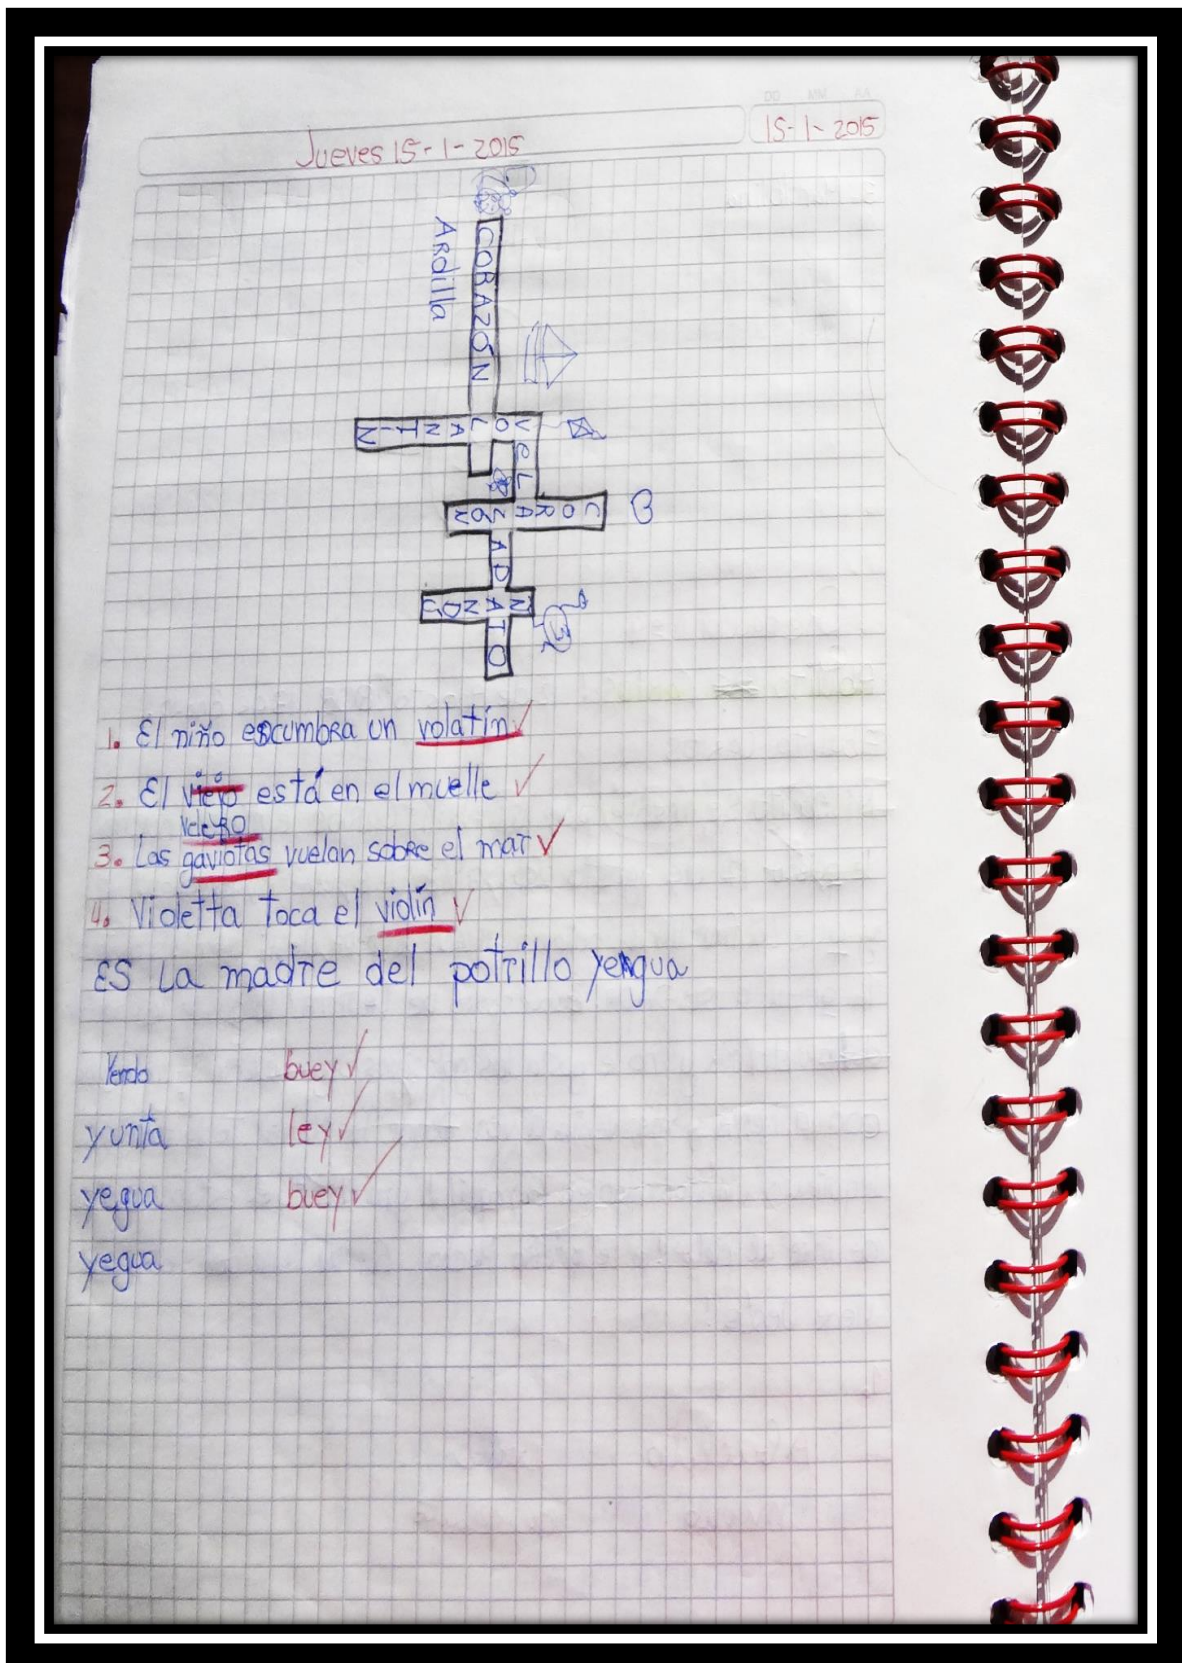 DD MM AA
Jueves 15-1-2015 15-1-2015
CORAZÓN
Ardilla
VOLANTIN
CORAZÓN
ÑANDÚ
1. El niño escumbra un volatín
2. El viejo está en el muelle
velero
3. Las gaviotas vuelan sobre el mar
4. Violetta toca el violín
ES La madre del potrillo yengua
Yendo buey
yunta ley
yegua buey
yegua